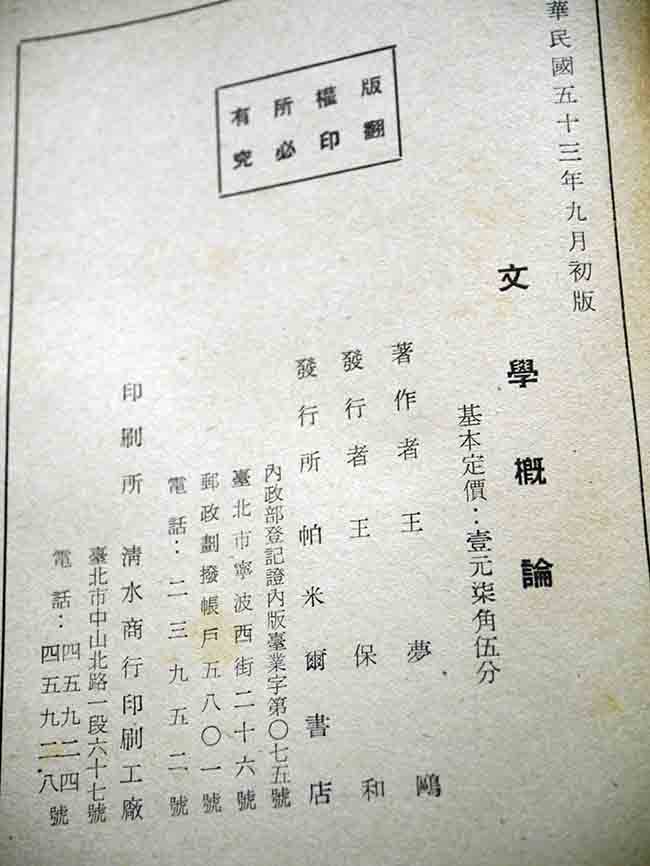 華民國五十三年九月初版
文學概論
基本定價：壹元柒角伍分
著作者王夢鷗
發行者王保和
發行所帕米爾書店
內政部登記證內版臺業字第〇七五號
臺北市寧波西街二十六號
郵政劃撥帳戶五八〇一號
電話：二三九五二號
印刷所清水商行印刷工廠
臺北市中山北路一段六十七號
電話：四五九二四
四五九二八號
版權所有
翻印必究